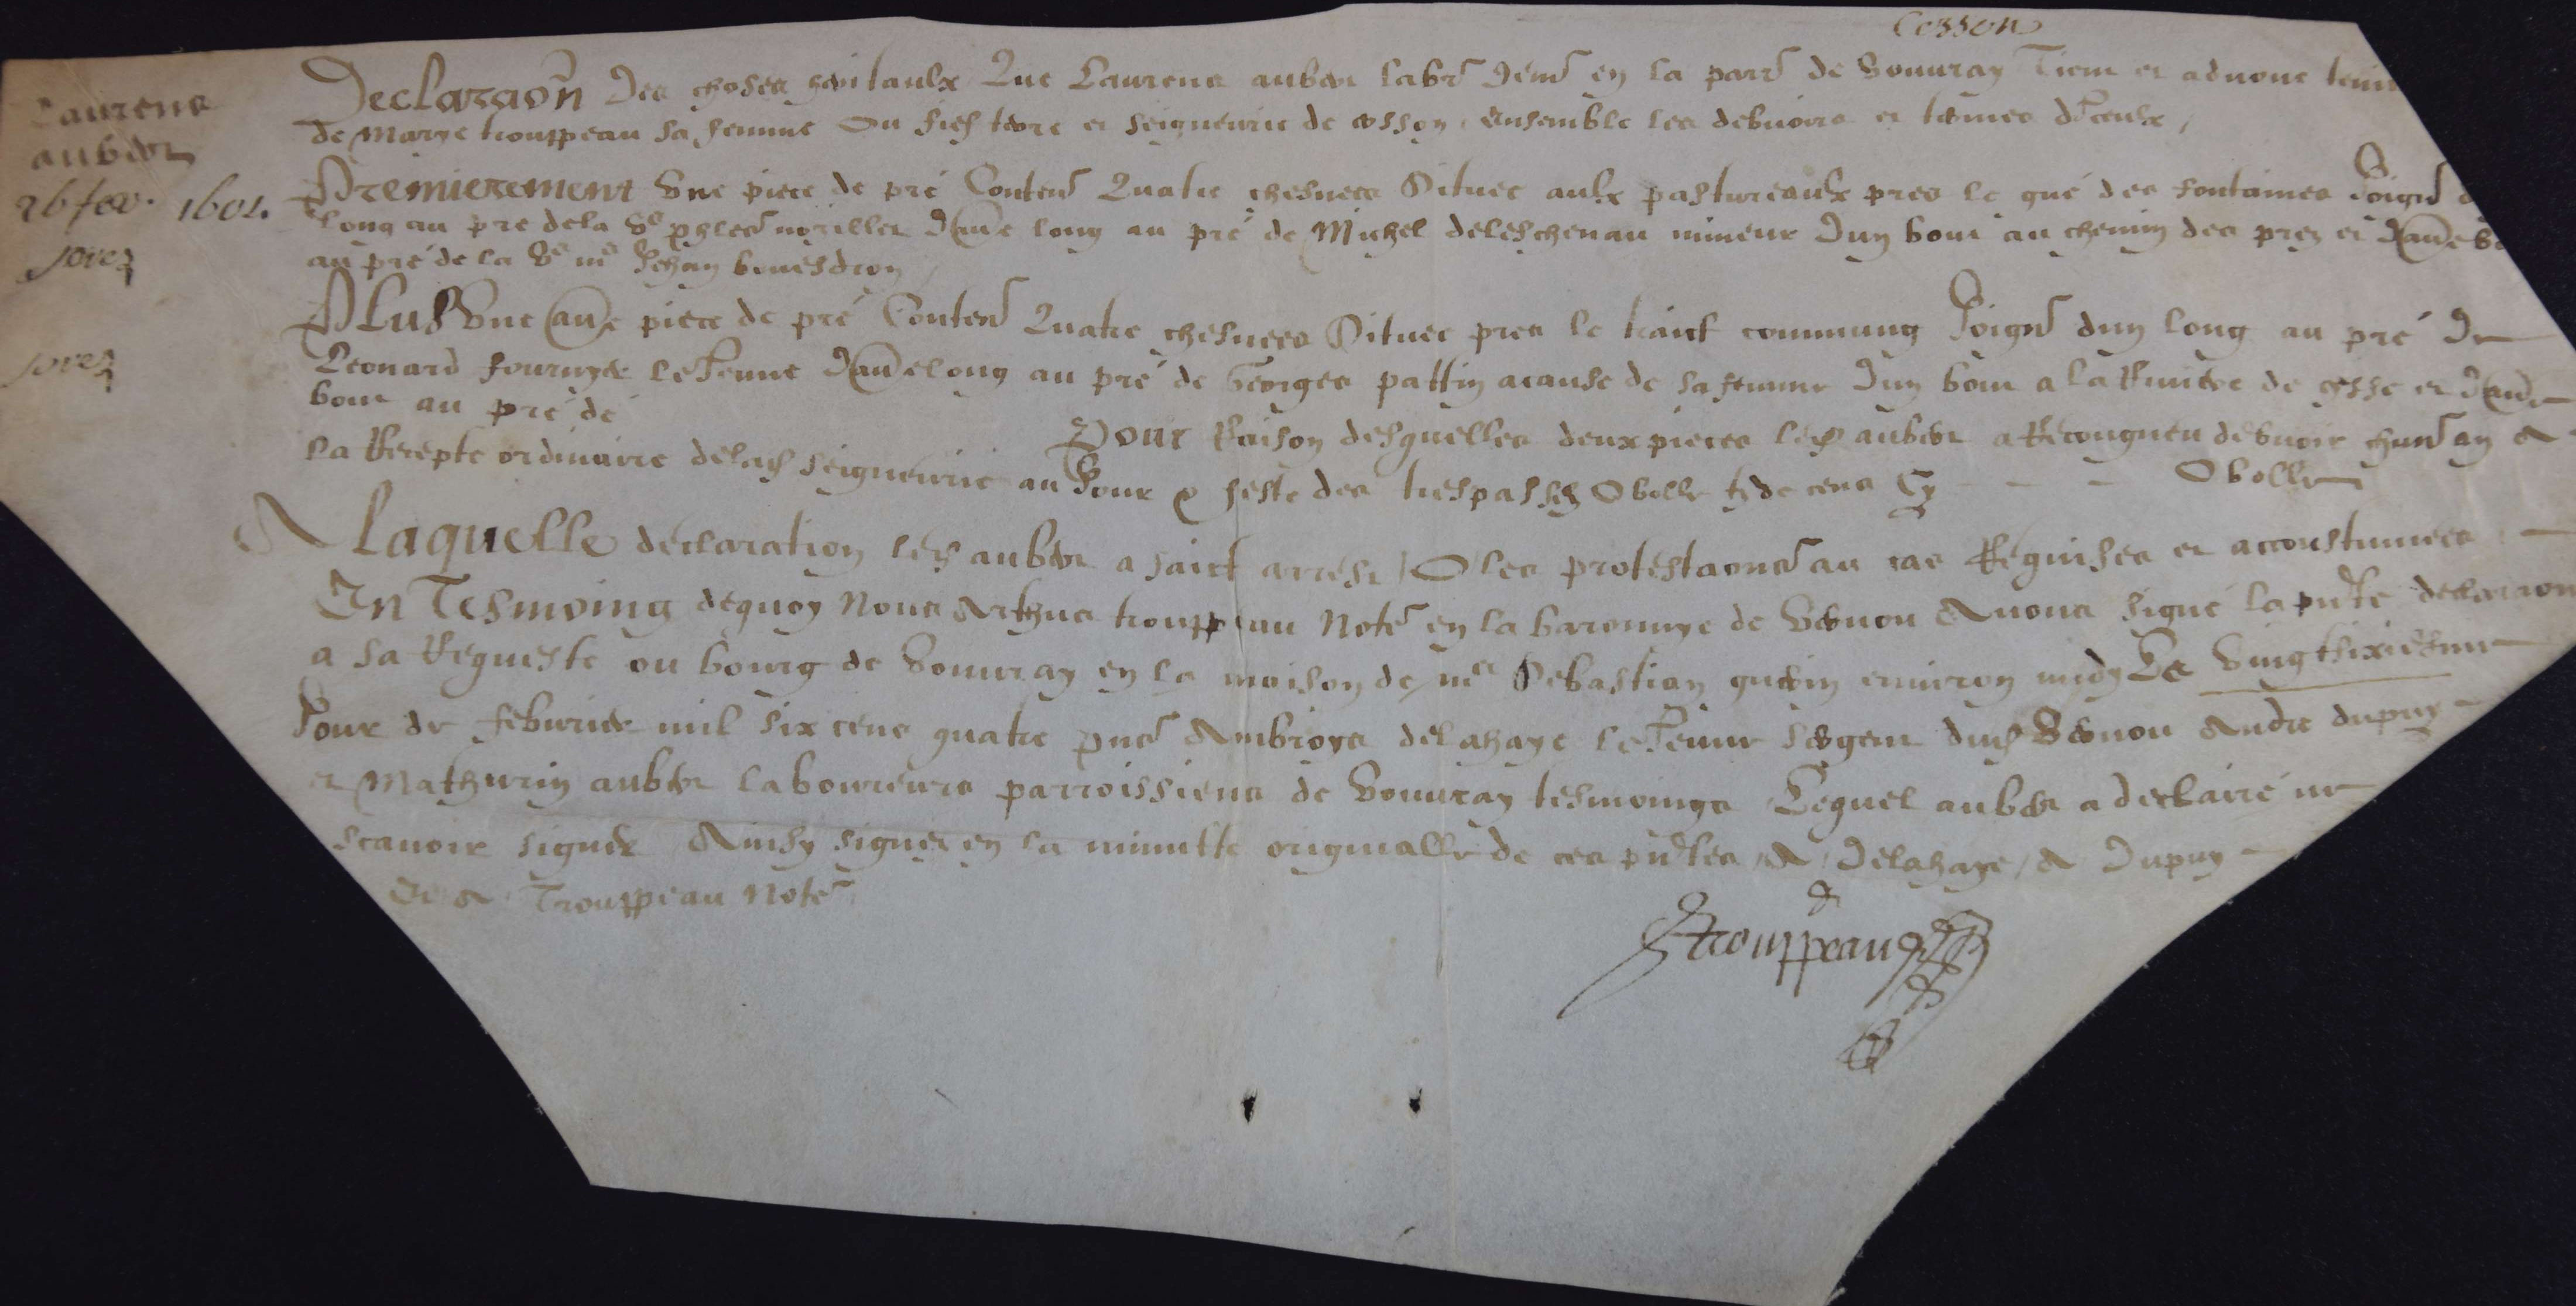 Cosson
Laurens
aubert
26 fev. 1601.
Declaraon des choses heritaulx Que Laurens aubert labr demr en la parr de Vouvray Tient et advoue tenir
de Marye trouppeau sa femme Ou fief terre et seigneurie de cosson, ensemble les debvoirs et termes diceulx,
Premierement Une piece de pré Content Quatre chesnees Situee aulx pastureaulx pres le gué des fontaines Joignt d
long au pre dela Ve daue long au pré de Michel deleschenau mineur dun bout au chemin des prez et daue bo
au pré de la Ve me Jehan
PLus Une aue piece de pré Content Quatre chesnees Situee pres le traict commung Joignt dun long au pré de
Leonard fournyer leJeune daue long au pré de Georges pattin acause de sa femme dun bout a la Riviere de cisse et daue
bout au pré de
Pour Raison desquelles deux pieces led aubert a Recongneu debvoir chun an A
la Recepte ordinaire delad seigneurie au Jour & feste des trespassez Obolle tz de cens Cy - - Obolle
A Laquelle declaration led aubert a faict arrest, O les protestaons au cas Requises et accoustumees
En Tesmoing dequoy Nous Arthus trouppeau Notre en la baronnye de Vernou Avons signé la pnte declaraon
a sa Requeste ou bourg de Vouvray en la maison de me Sebastian guerin environ midy Le Vingtsixiesme
Jour de febvrier mil six cens quatre pns Ambroys delahaye leJeune sergent dud Vernou Andre dupuy
et Mathurin aubert laboureurs parroissiens de Vouvray tesmoings Lequel aubert a declairé ne
scavoir signer Ainsy signez en la minutte originalle de ces pntes, A, Delahaye, A Dupuy
Et A Trouppeau Notre
A
trouppeau